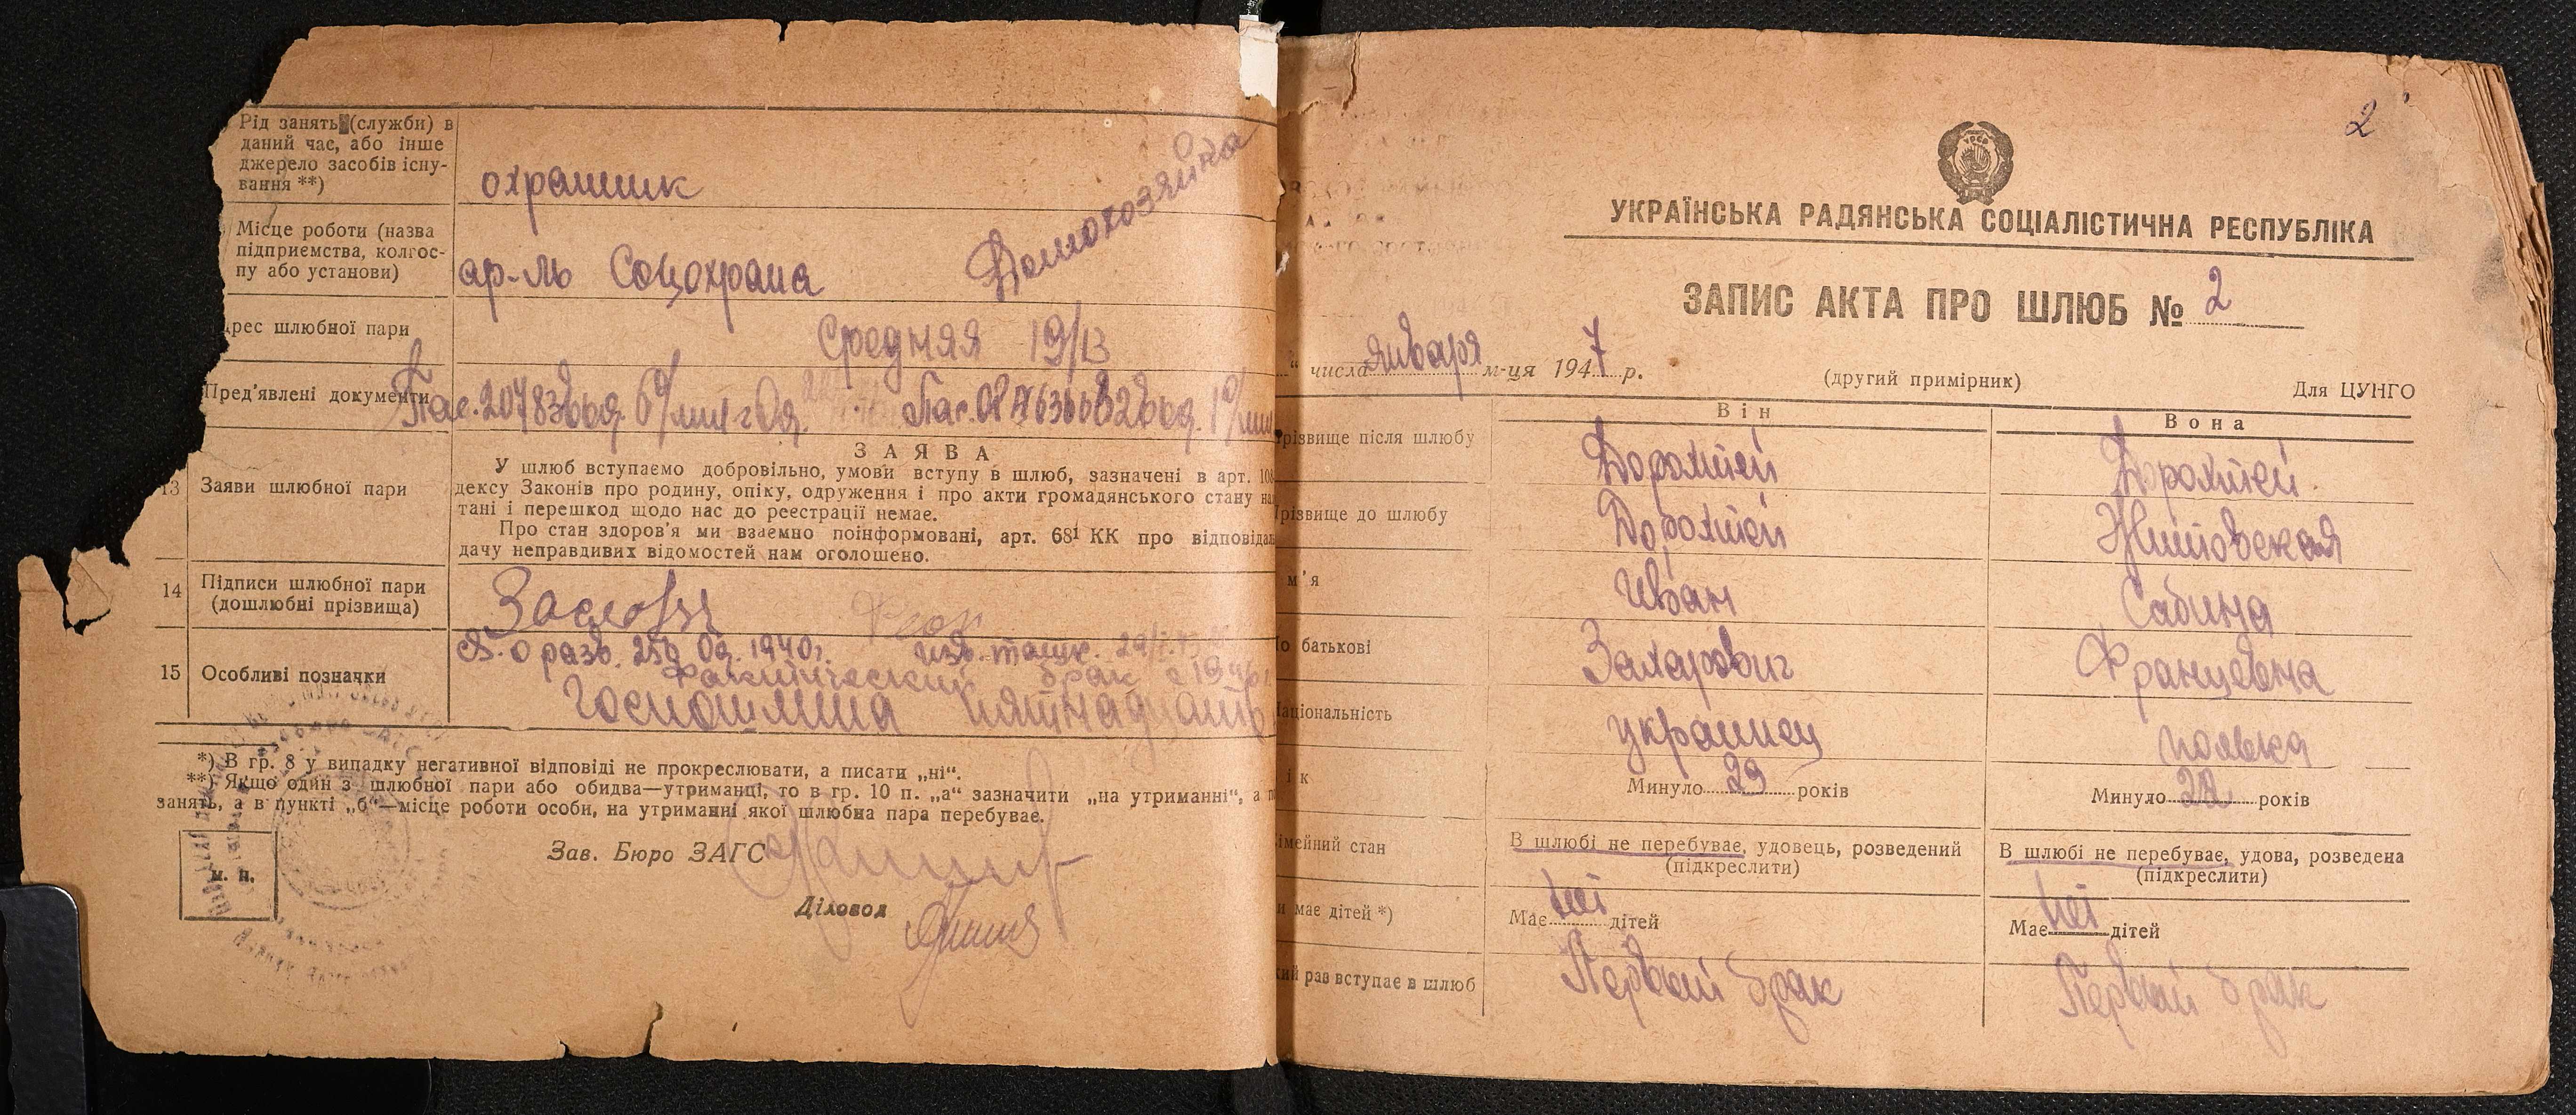 Рід занять (служби) в
даний час, або інше
джерело засобів існу-
вання **)
охраник
Місце роботи (назва
підприємства, колгос-
пу або установи)
ар-ль Соцохрана
Домохозяйка
дрес шлюбної пари
Средняя 19/13
Пред'явлені документи
Пас.
Пас.
ЗАЯВА
13 Заяви шлюбної пари
У шлюб вступаємо добровільно, умови вступу в шлюб, зазначені в арт. 108
дексу Законів про родину, опіку, одруження і про акти громадянського стану на
тані і перешкод щодо нас до реєстрації немає.
Про стан здоров'я ми взаємно поінформовані, арт. 68¹ КК про відповідал
дачу неправдивих відомостей нам оголошено.
14 Підписи шлюбної пари
(дошлюбні прізвища)
15 Особливі позначки
о разв. 1940г.
Фактический брак с 1946г
Госпошлина пятнадцать
*) В гр. 8 у випадку негативної відповіді не прокреслювати, а писати „ні“.
**) Якщо один з шлюбної пари або обидва—утриманці, то в гр. 10 п. „а“ зазначити „на утриманні“, а п
занять, а в пункті „б“—місце роботи особи, на утриманні якої шлюбна пара перебуває.
Зав. Бюро ЗАГС
м. п.
Діловод
2
УРСР
УКРАЇНСЬКА РАДЯНСЬКА СОЦІАЛІСТИЧНА РЕСПУБЛІКА
ЗАПИС АКТА ПРО ШЛЮБ № 2
“ числа января м-ця 1947 р.
(другий примірник)
Для ЦУНГО
Він
Вона
різвище після шлюбу
Дорошей
Дорошей
різвище до шлюбу
Дорошей
Житовская
м'я
Иван
Сабина
о батькові
Захарович
Францевна
аціональність
украинец
полька
ік
Минуло 29 років
Минуло 22 років
імейний стан
В шлюбі не перебуває, удовець, розведений
(підкреслити)
В шлюбі не перебуває, удова, розведена
(підкреслити)
и має дітей *)
Має ні дітей
Має ні дітей
кий раз вступає в шлюб
Первый брак
Первый брак